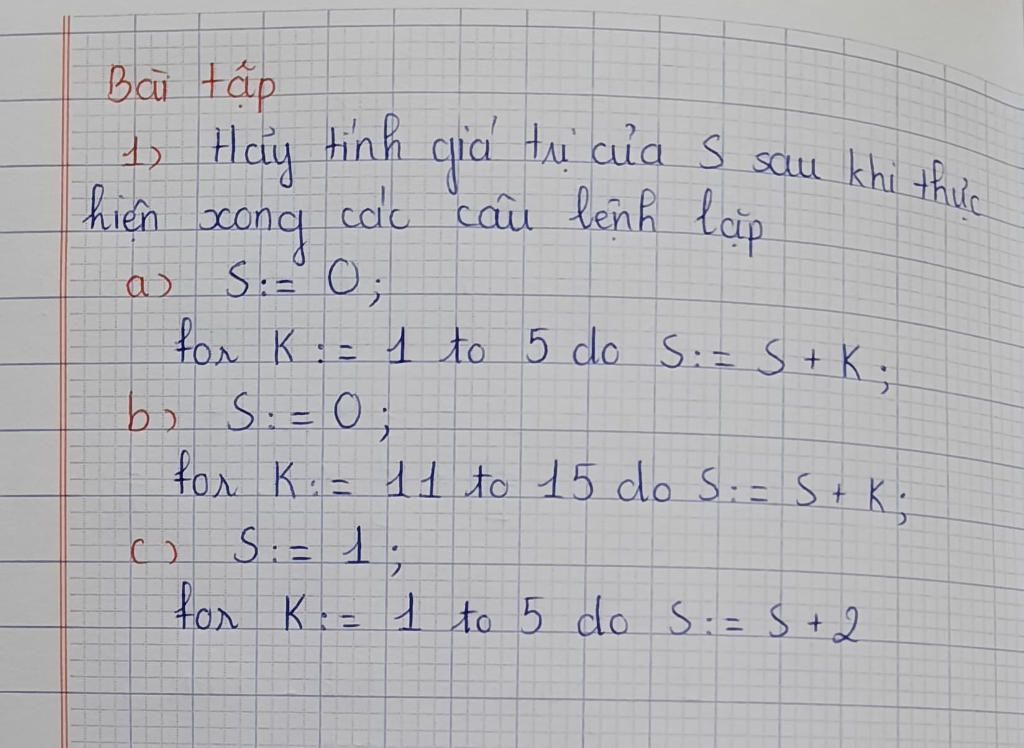 Bài tập
1) Hãy tính giá trị của S sau khi thực
hiện xong các câu lệnh lặp
a) S:= 0;
for K:= 1 to 5 do S:= S + K;
b) S:= 0;
for K:= 11 to 15 do S:= S + K;
c) S:= 1;
for K:= 1 to 5 do S:= S + 2